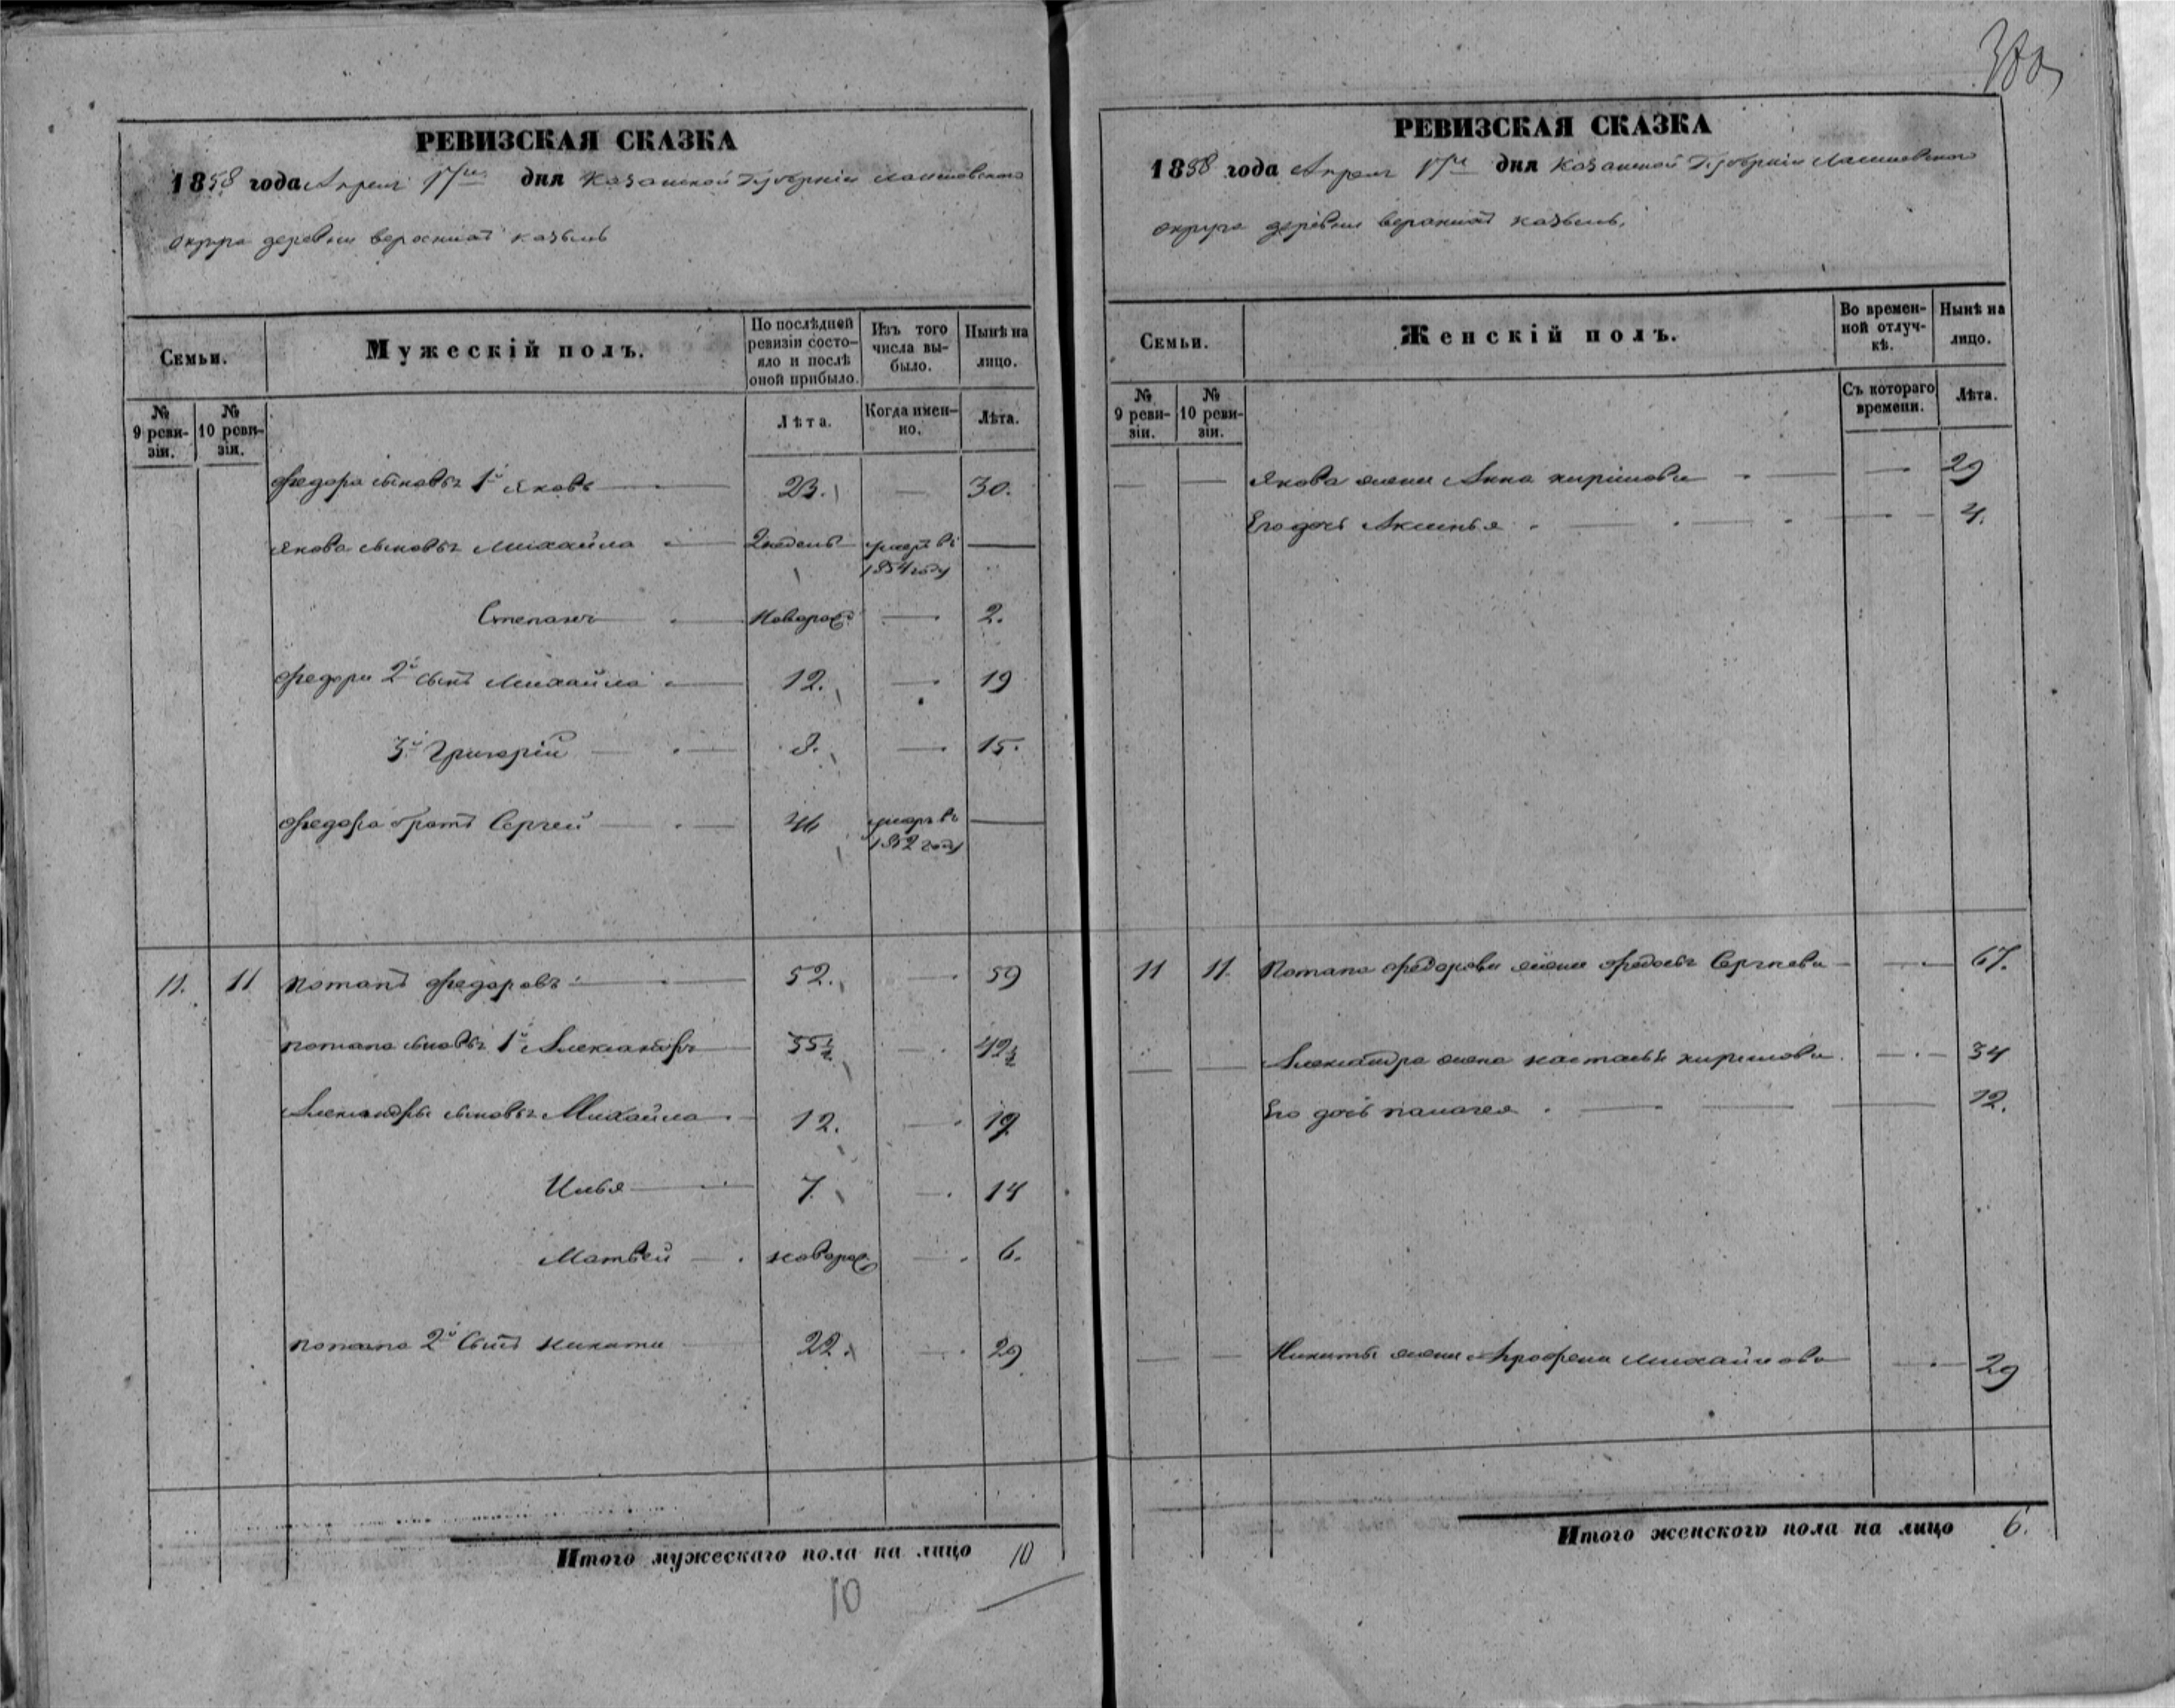 РЕВИЗСКАЯ СКАЗКА
1858 года Апреля 17го дня Казанской Губерніи Лаишевского
округа деревни верхнiй казыль
Семьи.
Мужескій полъ.
По послѣдней ревизіи состояло и послѣ оной прибыло.
Изъ того числа выбыло.
Нынѣ на лицо.
№ 9 ревизіи.
№ 10 ревизіи.
Лѣта.
Когда именно.
Лѣта.
федора сыновья 1й Яковъ 23. — 30.
Якова сыновья Михайла 2 недель умеръ въ 1854 году —
Степанъ Новорож. — 2.
федора 2й сынъ Михайла 12. — 19
3й Григорій 8. — 15.
федора братъ Сергей умеръ въ 1852 году —
11. 11 потапъ федоровъ 52. — 59
потапа сыновья 1й Александръ 35½ — 42½
Александра сыновья Михайла 12. — 19
Илья 7. — 14
Матвей новорож. — 6.
потапа 2й сынъ никита 22. — 29
Итого мужескаго пола на лицо 10
10
РЕВИЗСКАЯ СКАЗКА
1858 года Апреля 17го дня Казанской Губерніи Лаишевского
округа деревни казыль.
Семьи.
Женскій полъ.
Во временной отлучкѣ.
Нынѣ на лицо.
№ 9 ревизіи.
№ 10 ревизіи.
Съ котораго времени.
Лѣта.
Якова жена Анна кирилова — 29
Его дочь Аксинья — 4.
11 11. Потапа федорова жена федосья Сергѣева — 67.
Александра жена настасья кирилова — 34
Его дочь палагея — 12.
Никиты жена Афрофена михайлова — 29
Итого женского пола на лицо 6.